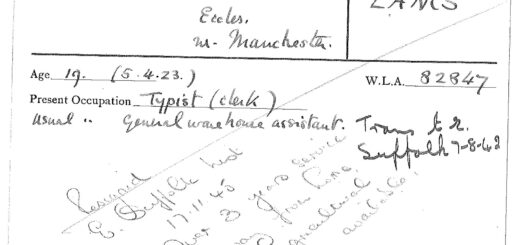 LANCS
Eccles.
nr. Manchester.
Age 19. (5.4.23.)
W.L.A. 82847
Present Occupation Typist (clerk)
Usual " General warehouse assistant.
Trans to E.
Suffolk 7-8-42
Resigned
E. Suffolk West
17.11.45
Over 3 years service
away from home
agricultural
available